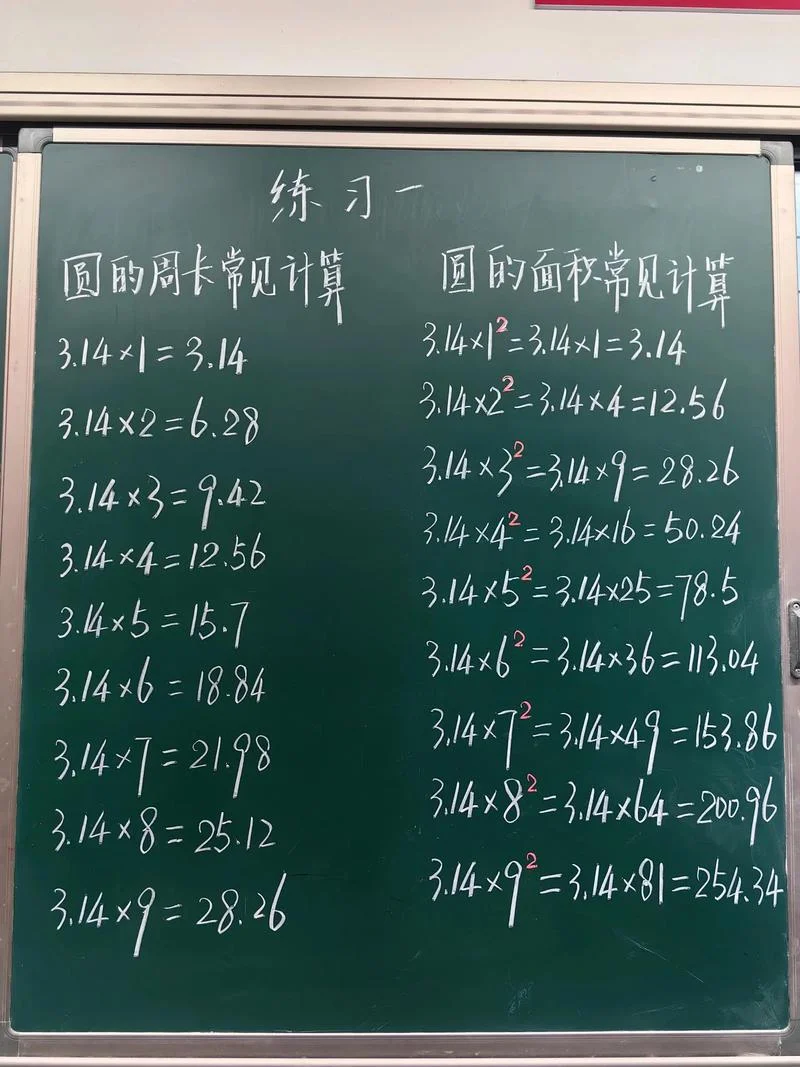 练习一
圆的周长常见计算
3.14×1=3.14
3.14×2=6.28
3.14×3=9.42
3.14×4=12.56
3.14×5=15.7
3.14×6=18.84
3.14×7=21.98
3.14×8=25.12
3.14×9=28.26
圆的面积常见计算
3.14×1²=3.14×1=3.14
3.14×2²=3.14×4=12.56
3.14×3²=3.14×9=28.26
3.14×4²=3.14×16=50.24
3.14×5²=3.14×25=78.5
3.14×6²=3.14×36=113.04
3.14×7²=3.14×49=153.86
3.14×8²=3.14×64=200.96
3.14×9²=3.14×81=254.34